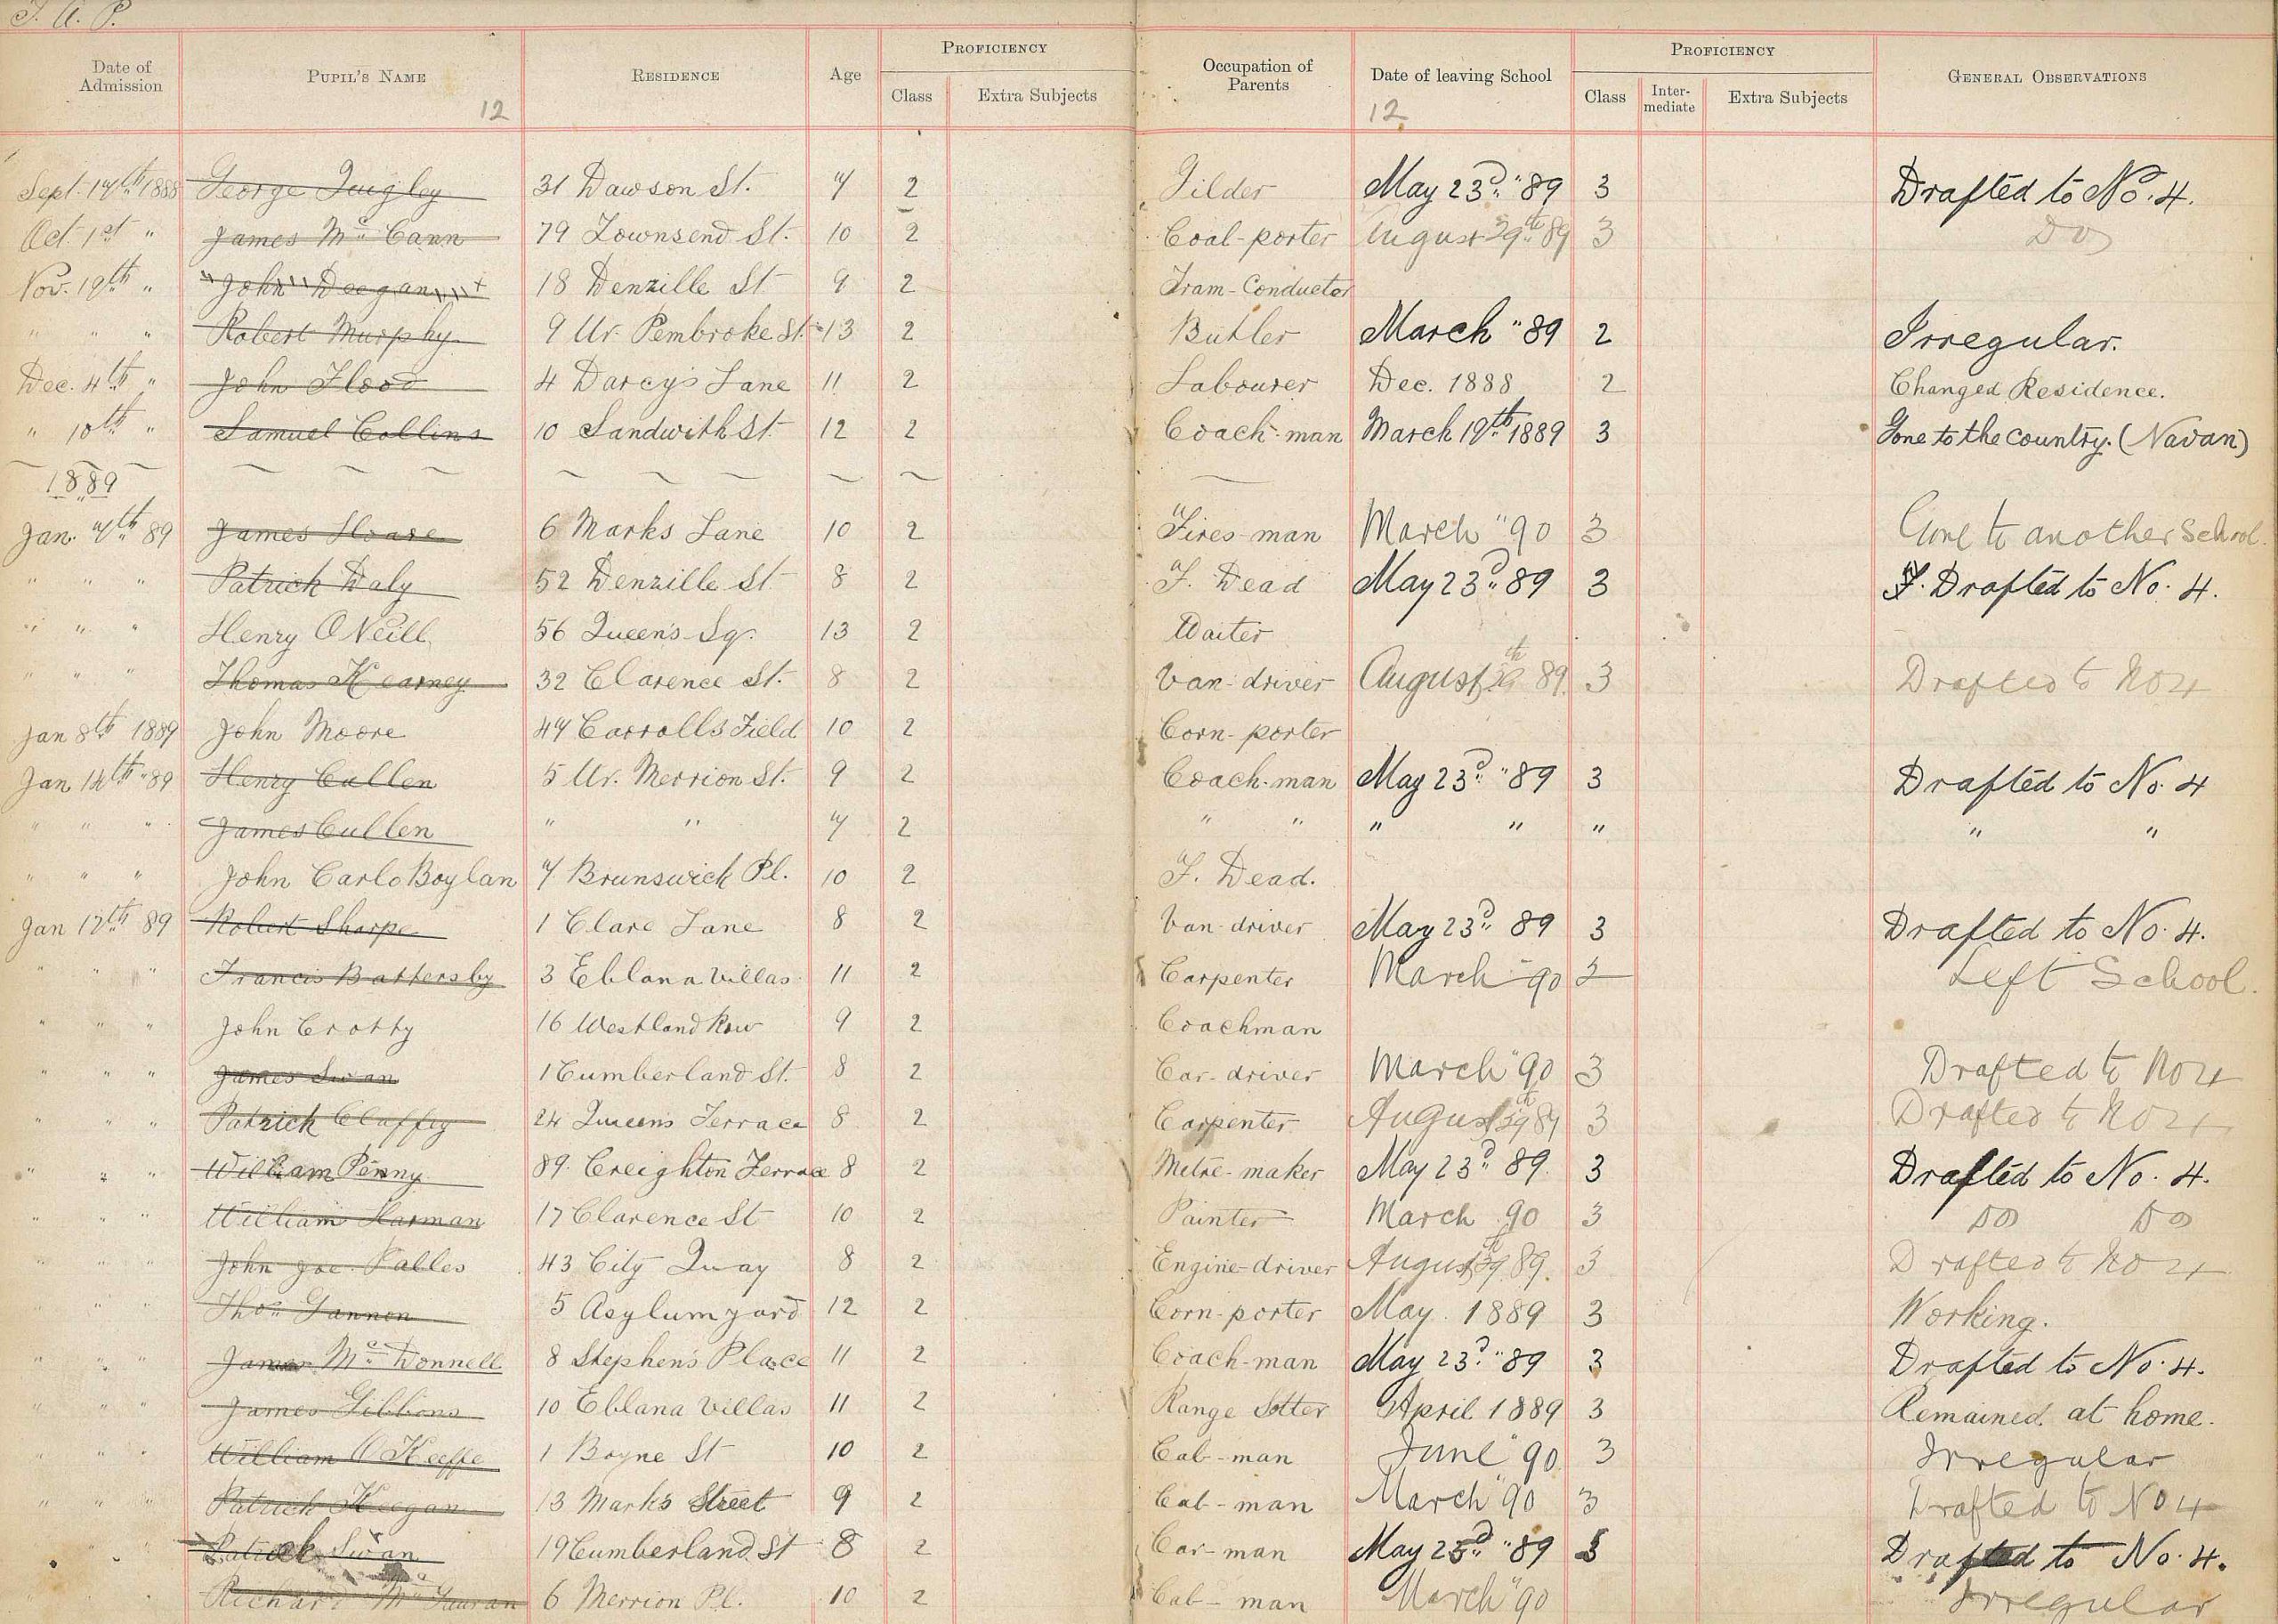 J. A. P.
Date of Admission PUPIL'S NAME RESIDENCE Age PROFICIENCY Class Extra Subjects Occupation of Parents Date of leaving School PROFICIENCY Class Inter-mediate Extra Subjects GENERAL OBSERVATIONS
12 12
Sept. 17th 1888 George Quigley 31 Dawson St. 7 2 Gilder May 23d "89 3 Drafted to No. 4.
Oct. 1st " James Mc Cann 79 Townsend St. 10 2 Coal-porter August 29th 89 3 Do
Nov. 19th " John Deegan 18 Denzille St 9 2 Tram-Conductor
" " " Robert Murphy 9 Ur. Pembroke St. 13 2 Butler March "89 2 Irregular.
Dec. 4th " John Flood 4 Darcy's Lane 11 2 Labourer Dec. 1888 2 Changed Residence.
" 10th " Samuel Collins 10 Sandwith St. 12 2 Coach-man March 19th 1889 3 Gone to the country. (Navan)
1889
Jan. 7th 89 James Hoare 6 Marks Lane 10 2 Fires-man March "90 3 Gone to another School.
" " " Patrick Daly 52 Denzille St 8 2 F. Dead May 23d "89 3 Drafted to No. 4.
" " " Henry O'Neill 56 Queen's Sq. 13 2 Waiter
" " " Thomas Kearney 32 Clarence St. 8 2 Van-driver August 29th 89. 3 Drafted to No 4
Jan 8th 1889 John Moore 47 Carrolls Field 10 2 Corn-porter
Jan 14th "89 Henry Cullen 5 Ur. Merrion St. 9 2 Coach-man May 23d "89 3 Drafted to No. 4
" " " James Cullen " " 7 2 " " " " " " "
" " " John Carlo Boylan 7 Brunswick Pl. 10 2 F. Dead.
Jan 17th 89 Robert Sharpe 1 Clare Lane 8 2 Van-driver May 23d 89 3 Drafted to No. 4.
" " " Francis Battersby 3 Eblana Villas 11 2 Carpenter March "90 2 Left School.
" " " John Crotty 16 Westland Row 9 2 Coachman
" " " James Swan 1 Cumberland St. 8 2 Car-driver March "90 3 Drafted to No 4
" " " Patrick Claffey 24 Queen's Terrace 8 2 Carpenter August 29th 89 3 Drafted to No 4
" " " William Penny 89. Creighton Terrace 8 2 Metre-maker May 23d 89. 3 Drafted to No. 4.
" " " William Harman 17 Clarence St 10 2 Painter March 90 3 Do Do
" " " John Joe. Palles 43 City Quay 8 2 Engine-driver August 29 89. 3 Drafted to No 4
" " " Thos Gannon 5 Asylum yard 12 2 Corn-porter May. 1889 3 Working.
" " " James Mc Donnell 8 Stephen's Place 11 2 Coach-man May 23d "89 3 Drafted to No. 4.
" " " James Gibbons 10 Eblana Villas 11 2 Range Setter April 1889 3 Remained at home.
" " " William O'Keeffe 1 Boyne St 10 2 Cab-man June "90 3 Irregular
" " " Patrick Keegan 13 Marks Street 9 2 Cab-man March "90 3 Drafted to No 4
Patrick Swan 19 Cumberland St 8 2 Car-man May 23d "89 3 Drafted to No. 4.
Richard Mc 6 Merrion Pl. 10 2 Cab-man March "90 Irregular